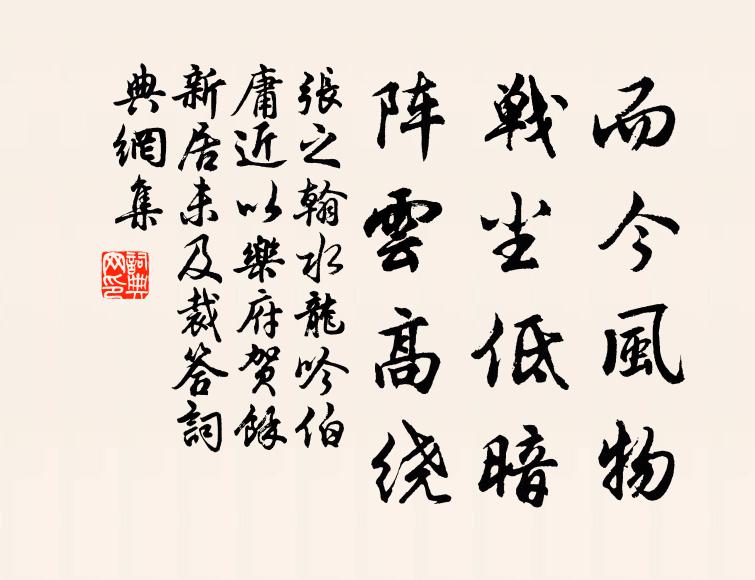 而今風物
戦尘低暗
阵雲高绕
張之翰水龍吟伯
庸近以樂府贺餘
新居未及裁答詞
典網集
詞典
网印